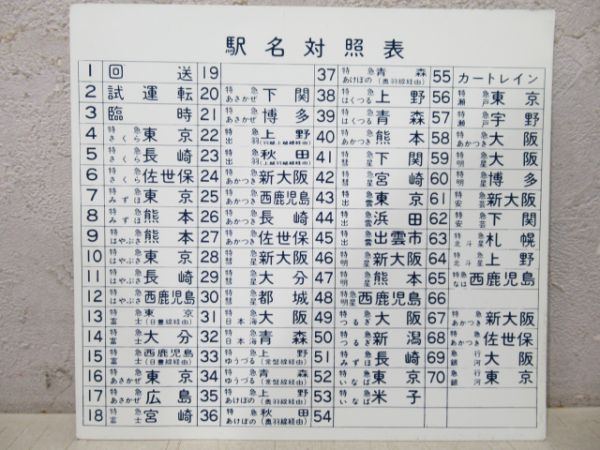 駅名対照表
1 回送
2 試運転
3 臨時
4 特急さくら 東京
5 特急さくら 長崎
6 特急さくら 佐世保
7 特急みずほ 東京
8 特急みずほ 熊本
9 特急はやぶさ 熊本
10 特急はやぶさ 東京
11 特急はやぶさ 長崎
12 特急はやぶさ 西鹿児島
13 特急富士 東京(日豊線経由)
14 特急富士 大分
15 特急富士 西鹿児島(日豊線経由)
16 特急あさかぜ 東京
17 特急あさかぜ 広島
18 特急富士 宮崎
19
20 特急あさかぜ 下関
21 特急あさかぜ 博多
22 特急出羽 上野
23 特急出羽 秋田
24 特急あかつき 新大阪
25 特急あかつき 西鹿児島
26 特急あかつき 長崎
27 特急あかつき 佐世保
28 特急彗星 新大阪
29 特急彗星 大分
30 特急彗星 都城
31 特急日本海 大阪
32 特急日本海 青森
33 特急ゆうづる 上野(常盤線経由)
34 特急ゆうづる 青森(常盤線経由)
35 特急あけぼの 上野(奥羽線経由)
36 特急あけぼの 秋田(奥羽線経由)
37 特急あけぼの 青森(奥羽線経由)
38 特急はくつる 上野
39 特急はくつる 青森
40 特急あかつき 熊本
41 特急彗星 下関
42 特急彗星 宮崎
43 特急出雲 東京
44 特急出雲 浜田
45 特急出雲 出雲市
46 特急明星 新大阪
47 特急明星 熊本
48 特急明星 西鹿児島
49 特急つるぎ 大阪
50 特急つるぎ 新潟
51 特急みずほ 長崎
52 特急いなば 東京
53 特急いなば 米子
54
55 カートレイン
56 特急瀬戸 東京
57 特急瀬戸 宇野
58 特急あかつき 大阪
59 特急明星 大阪
60 特急明星 博多
61 特急安芸 新大阪
62 特急安芸 下関
63 特急北斗星 札幌
64 特急北斗星 上野
65 特急なは 西鹿児島
66
67 特急あかつき 新大阪
68 特急あかつき 佐世保
69 急行銀河 大阪
70 急行銀河 東京